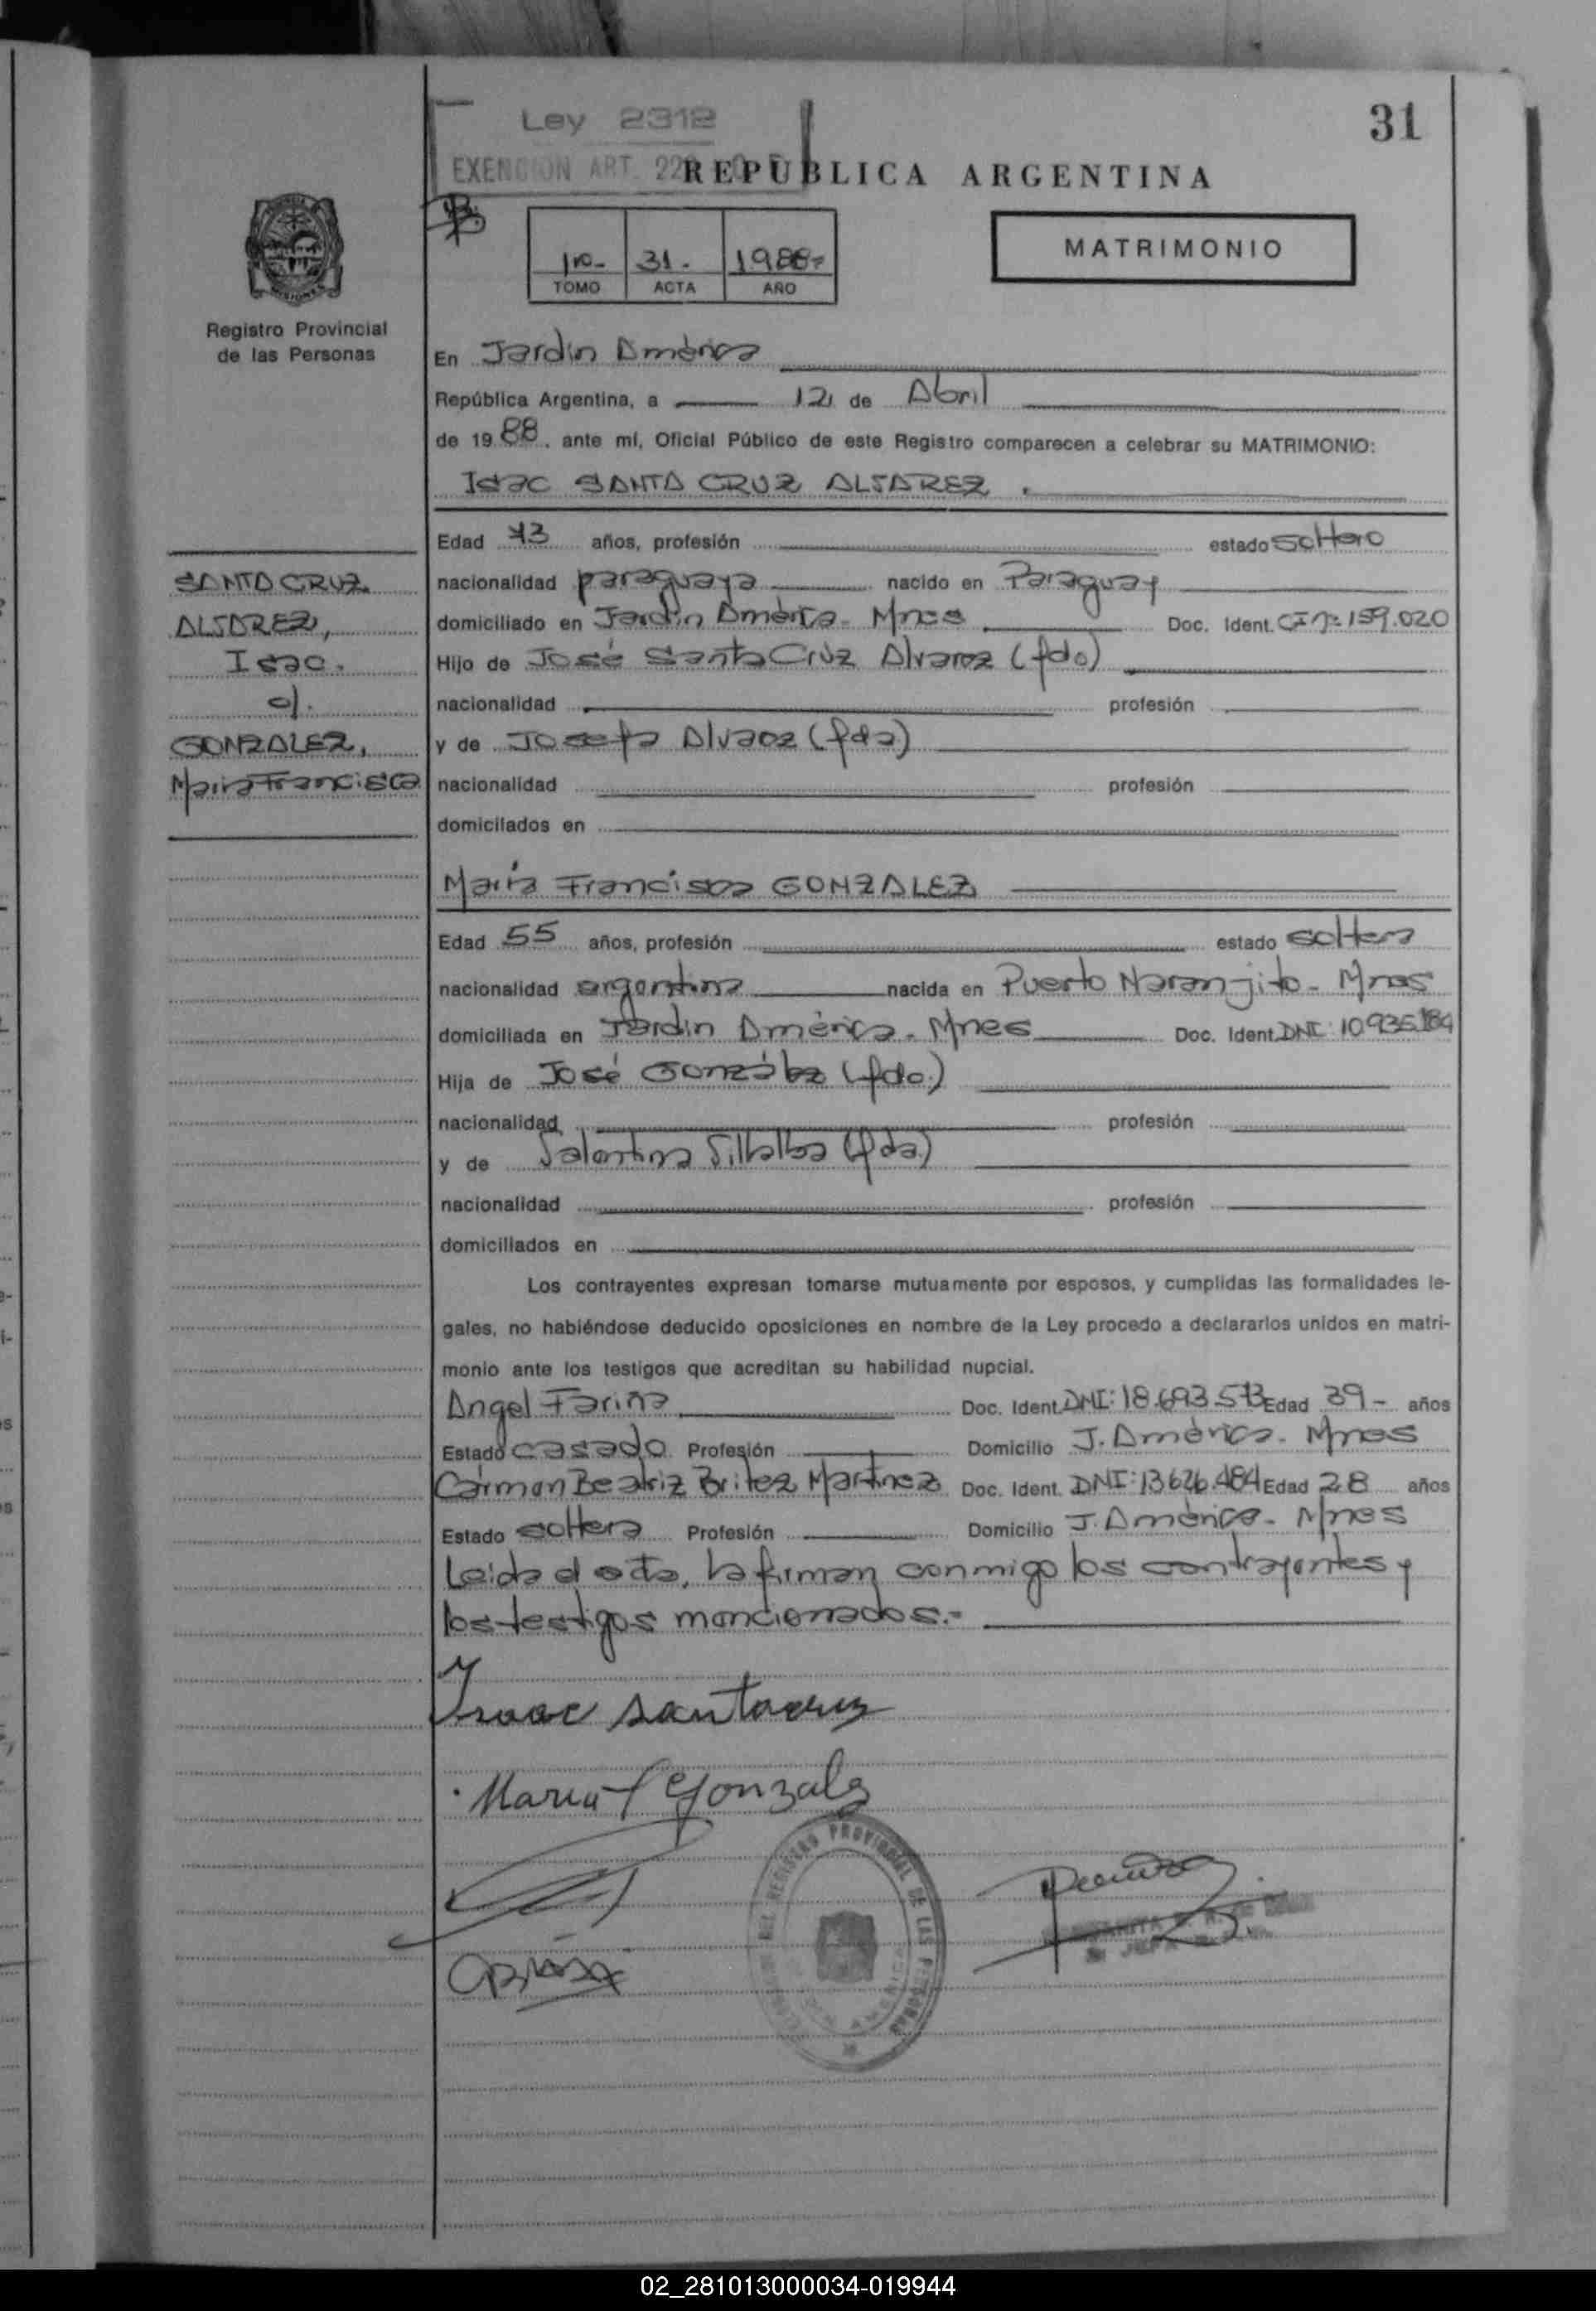 31
Ley 2312
EXENCION ART. 22
REPUBLICA ARGENTINA
MATRIMONIO
1º- 31. 1988-
TOMO ACTA AÑO
MISIONES
Registro Provincial
de las Personas
En Jardín América
República Argentina, a 12 de Abril
de 1988, ante mí, Oficial Público de este Registro comparecen a celebrar su MATRIMONIO:
Isac SANTA CRUZ ALVAREZ.
Edad años, profesión estado soltero
nacionalidad paraguaya nacido en Paraguay
domiciliado en Jardín América - Mnes Doc. Ident. CI nº: 159.020
Hijo de José Santa Cruz Alvarez (fdo)
nacionalidad profesión
y de Josefa Alvaez (fda)
nacionalidad profesión
domicilados en
SANTA CRUZ
ALVAREZ,
Isac.
c/.
GONZALEZ,
María Francisca
María Francisca GONZALEZ
Edad 55 años, profesión estado soltera
nacionalidad argentina nacida en Puerto Naranjito - Mnes
domiciliada en Jardín América - Mnes Doc. Ident. DNI: 10.935.184
Hija de José González (fdo.)
nacionalidad profesión
y de Valentina Villalba (fda.)
nacionalidad profesión
domiciliados en
Los contrayentes expresan tomarse mutuamente por esposos, y cumplidas las formalidades le-
gales, no habiéndose deducido oposiciones en nombre de la Ley procedo a declararlos unidos en matri-
monio ante los testigos que acreditan su habilidad nupcial.
Angel Fariña Doc. Ident. DNI: 18.693.573 Edad 39- años
Estado casado Profesión Domicilio J. América - Mnes
Carmen Beatriz Britez Martínez Doc. Ident. DNI: 13.626.484 Edad 28 años
Estado soltera Profesión Domicilio J. América - Mnes
Leída el acta, la firman conmigo los contrayentes y
los testigos mencionados.-
Isaac santacruz
Maria f Gonzalez
REGISTRO PROVINCIAL DE LAS PERSONAS
JEFA
02_281013000034-019944